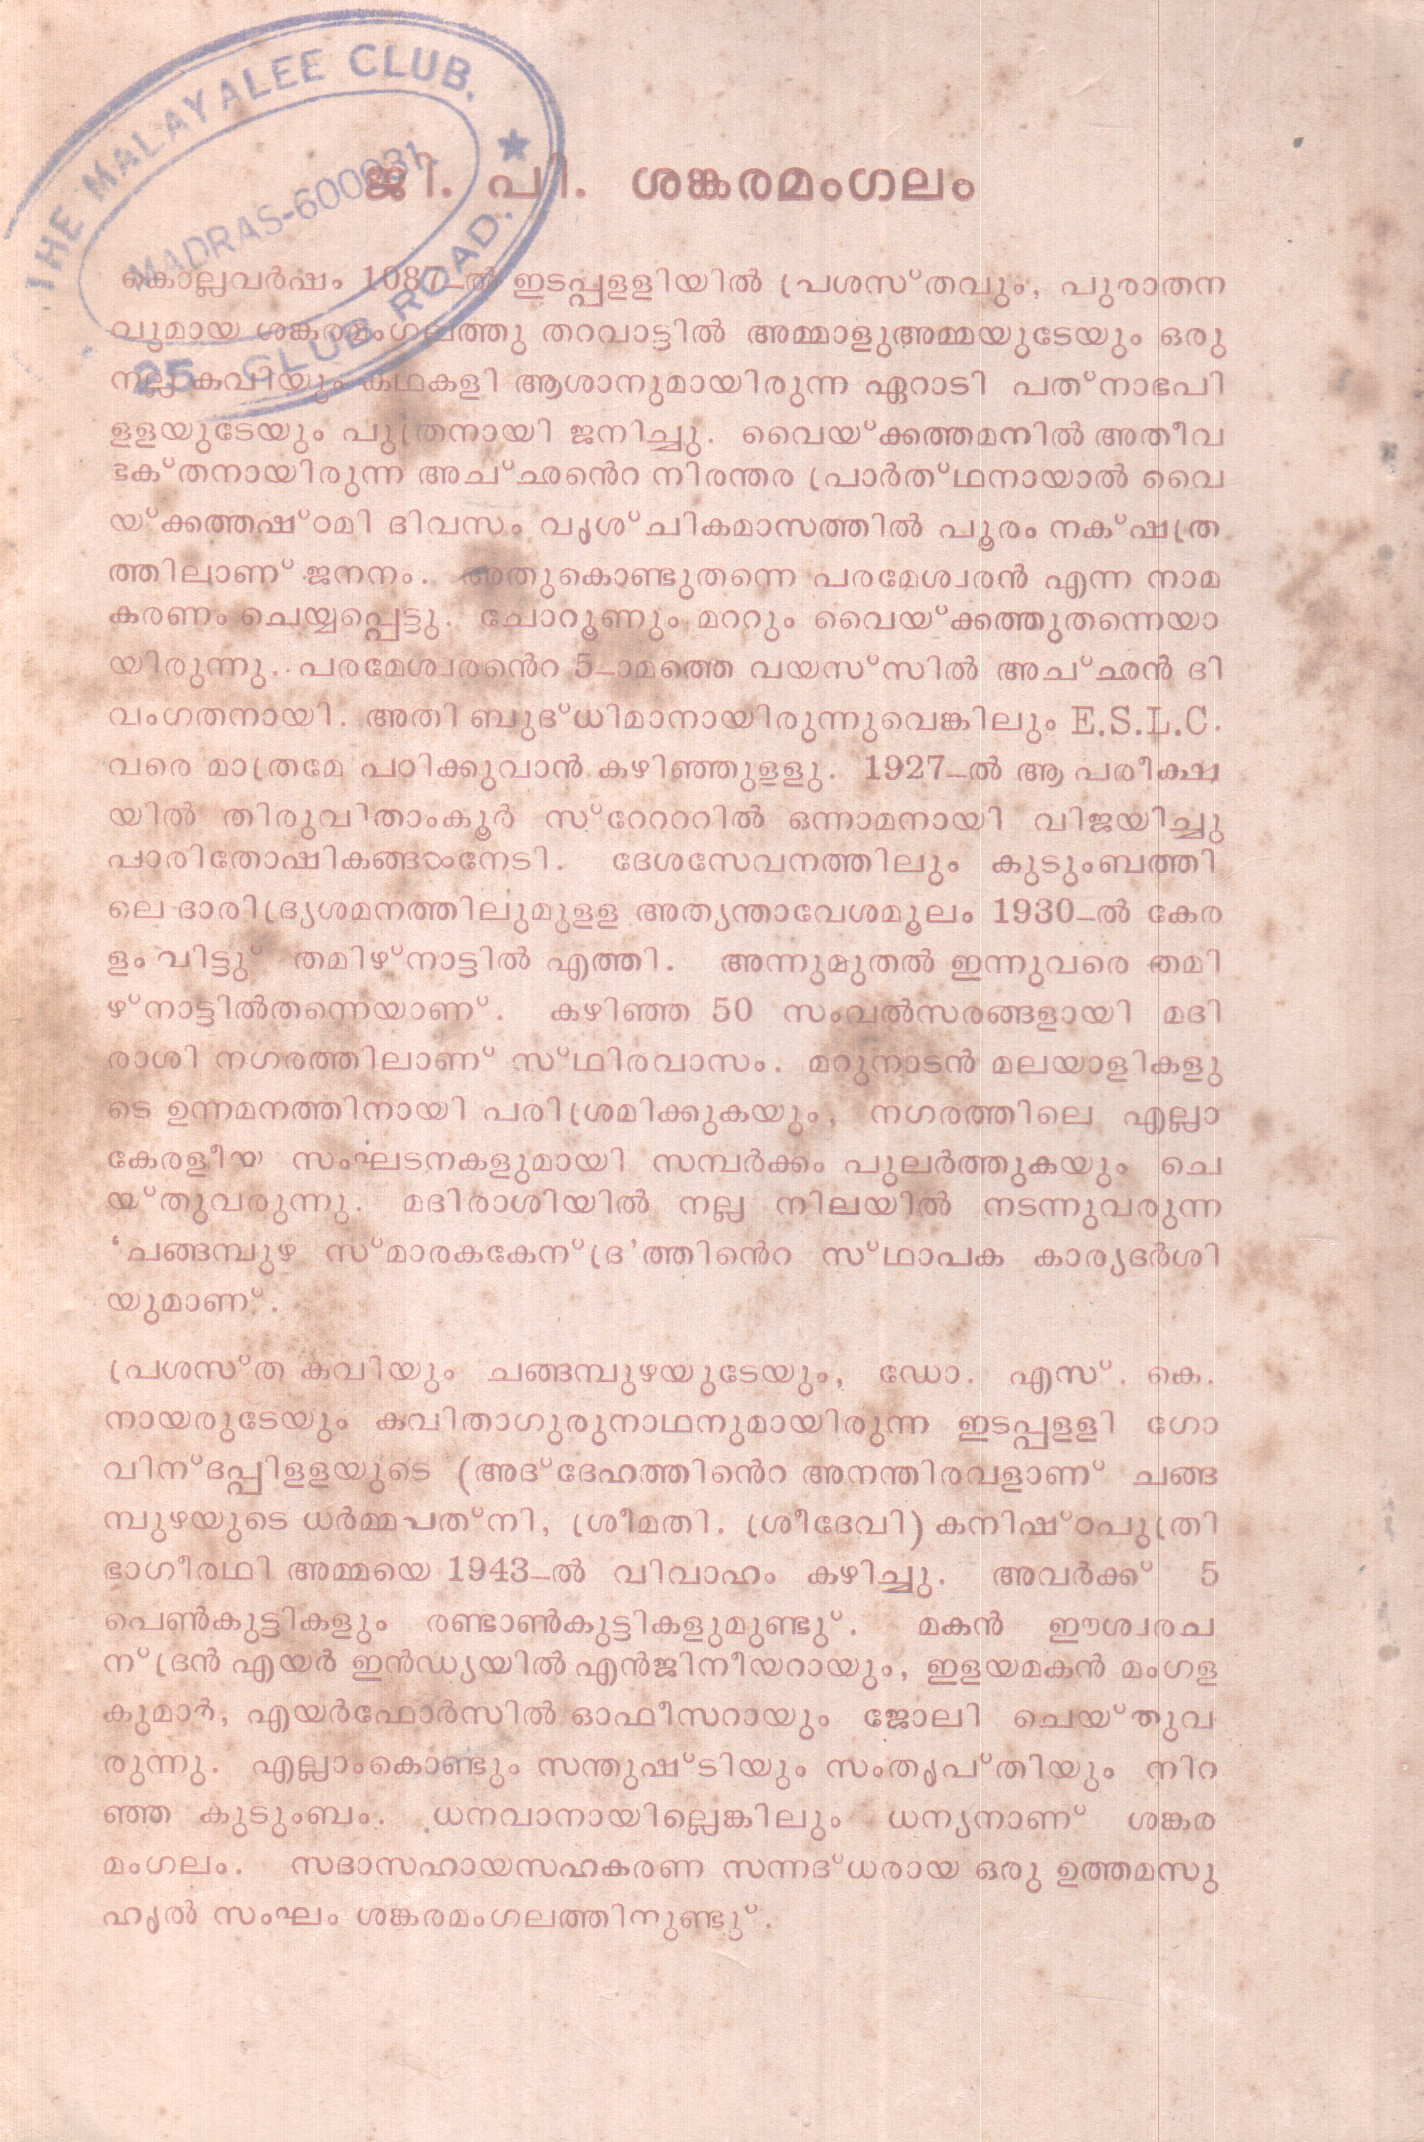 THE MALAYALEE CLUB.
MADRAS-600031.
25 CLUB ROAD.
ജി. പി. ശങ്കരമംഗലം
കൊല്ലവർഷം 1087-ൽ ഇടപ്പള്ളിയിൽ പ്രശസ്തവും, പുരാതന
വുമായ ശങ്കരമംഗലത്തു തറവാട്ടിൽ അമ്മാളുഅമ്മയുടേയും ഒരു
നല്ല കവിയും കഥകളി ആശാനുമായിരുന്ന ഏറാടി പത്നാഭപി
ള്ളയുടേയും പുത്രനായി ജനിച്ചു. വൈയ്ക്കത്തമനിൽ അതീവ
ഭക്തനായിരുന്ന അച്ഛൻെറ നിരന്തര പ്രാർത്ഥനായാൽ വൈ
യ്ക്കത്തഷ്ഠമി ദിവസം വൃശ്ചികമാസത്തിൽ പൂരം നക്ഷത്ര
ത്തിലാണ് ജനനം. അതുകൊണ്ടുതന്നെ പരമേശ്വരൻ എന്ന നാമ
കരണം ചെയ്യപ്പെട്ടു. ചോറൂണും മററും വൈയ്ക്കത്തുതന്നെയാ
യിരുന്നു. പരമേശ്വരൻെറ 5-ാമത്തെ വയസ്സിൽ അച്ഛൻ ദി
വംഗതനായി. അതി ബുദ്ധിമാനായിരുന്നുവെങ്കിലും E.S.L.C.
വരെ മാത്രമേ പഠിക്കുവാൻ കഴിഞ്ഞുള്ളു. 1927-ൽ ആ പരീക്ഷ
യിൽ തിരുവിതാംകൂർ സ്റേററററിൽ ഒന്നാമനായി വിജയിച്ചു
പാരിതോഷികങ്ങൾനേടി. ദേശസേവനത്തിലും കുടുംബത്തി
ലെ ദാരിദ്ര്യശമനത്തിലുമുള്ള അത്യന്താവേശമൂലം 1930-ൽ കേര
ളം വിട്ടു് തമിഴ്നാട്ടിൽ എത്തി. അന്നുമുതൽ ഇന്നുവരെ തമി
ഴ്നാട്ടിൽതന്നെയാണ്. കഴിഞ്ഞ 50 സംവൽസരങ്ങളായി മദി
രാശി നഗരത്തിലാണ് സ്ഥിരവാസം. മറുനാടൻ മലയാളികളു
ടെ ഉന്നമനത്തിനായി പരിശ്രമിക്കുകയും, നഗരത്തിലെ എല്ലാ
കേരളീയ സംഘടനകളുമായി സമ്പർക്കം പുലർത്തുകയും ചെ
യ്തുവരുന്നു. മദിരാശിയിൽ നല്ല നിലയിൽ നടന്നുവരുന്ന
‘ചങ്ങമ്പുഴ സ്മാരകകേന്ദ്ര’ത്തിൻെറ സ്ഥാപക കാര്യദർശി
യുമാണ്.
പ്രശസ്ത കവിയും ചങ്ങമ്പുഴയുടേയും, ഡോ. എസ്. കെ.
നായരുടേയും കവിതാഗുരുനാഥനുമായിരുന്ന ഇടപ്പള്ളി ഗോ
വിന്ദപ്പിള്ളയുടെ (അദ്ദേഹത്തിൻെറ അനന്തിരവളാണ് ചങ്ങ
മ്പുഴയുടെ ധർമ്മപത്നി, ശ്രീമതി. ശ്രീദേവി) കനിഷ്ഠപുത്രി
ഭാഗീരഥി അമ്മയെ 1943-ൽ വിവാഹം കഴിച്ചു. അവർക്ക് 5
പെൺകുട്ടികളും രണ്ടാൺകുട്ടികളുമുണ്ടു്. മകൻ ഈശ്വരച
ന്ദ്രൻ എയർ ഇൻഡ്യയിൽ എൻജിനീയറായും, ഇളയമകൻ മംഗള
കുമാർ, എയർഫോർസിൽ ഓഫീസറായും ജോലി ചെയ്തുവ
രുന്നു. എല്ലാംകൊണ്ടും സന്തുഷ്ടിയും സംതൃപ്തിയും നിറ
ഞ്ഞ കുടുംബം. ധനവാനായില്ലെങ്കിലും ധന്യനാണ് ശങ്കര
മംഗലം. സദാസഹായസഹകരണ സന്നദ്ധരായ ഒരു ഉത്തമസു
ഹൃൽ സംഘം ശങ്കരമംഗലത്തിനുണ്ടു്.